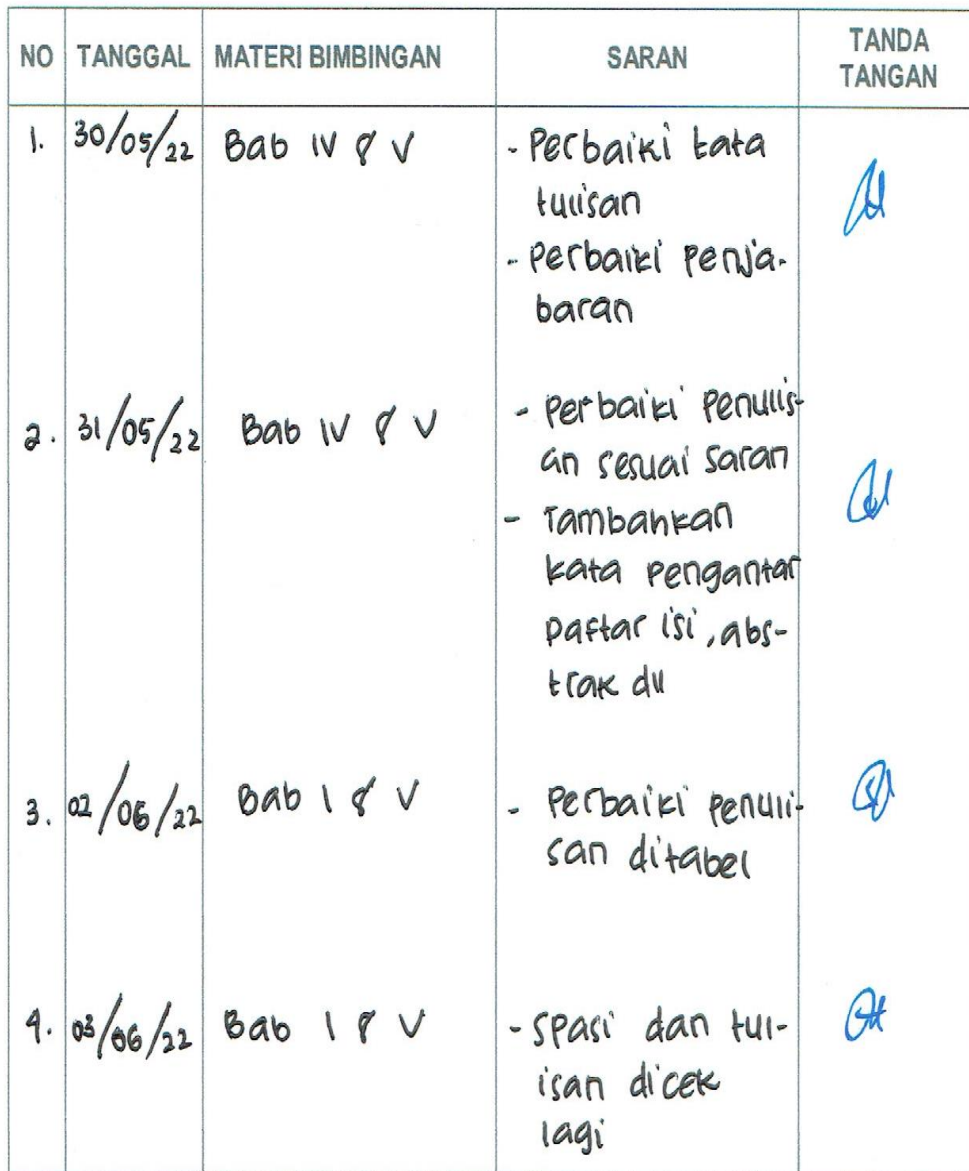 NO TANGGAL MATERI BIMBINGAN SARAN TANDA TANGAN
1. 30/05/22 Bab IV & V - Perbaiki tata
tulisan
- Perbaiki Penja-
baran
2. 31/05/22 Bab IV & V - Perbaiki Penulis-
an sesuai saran
- Tambahkan
kata pengantar
Daftar isi, abs-
trak dll
3. 02/06/22 Bab I & V - Perbaiki penuli-
san ditabel
4. 03/06/22 Bab I & V - Spasi dan tul-
isan dicek
lagi